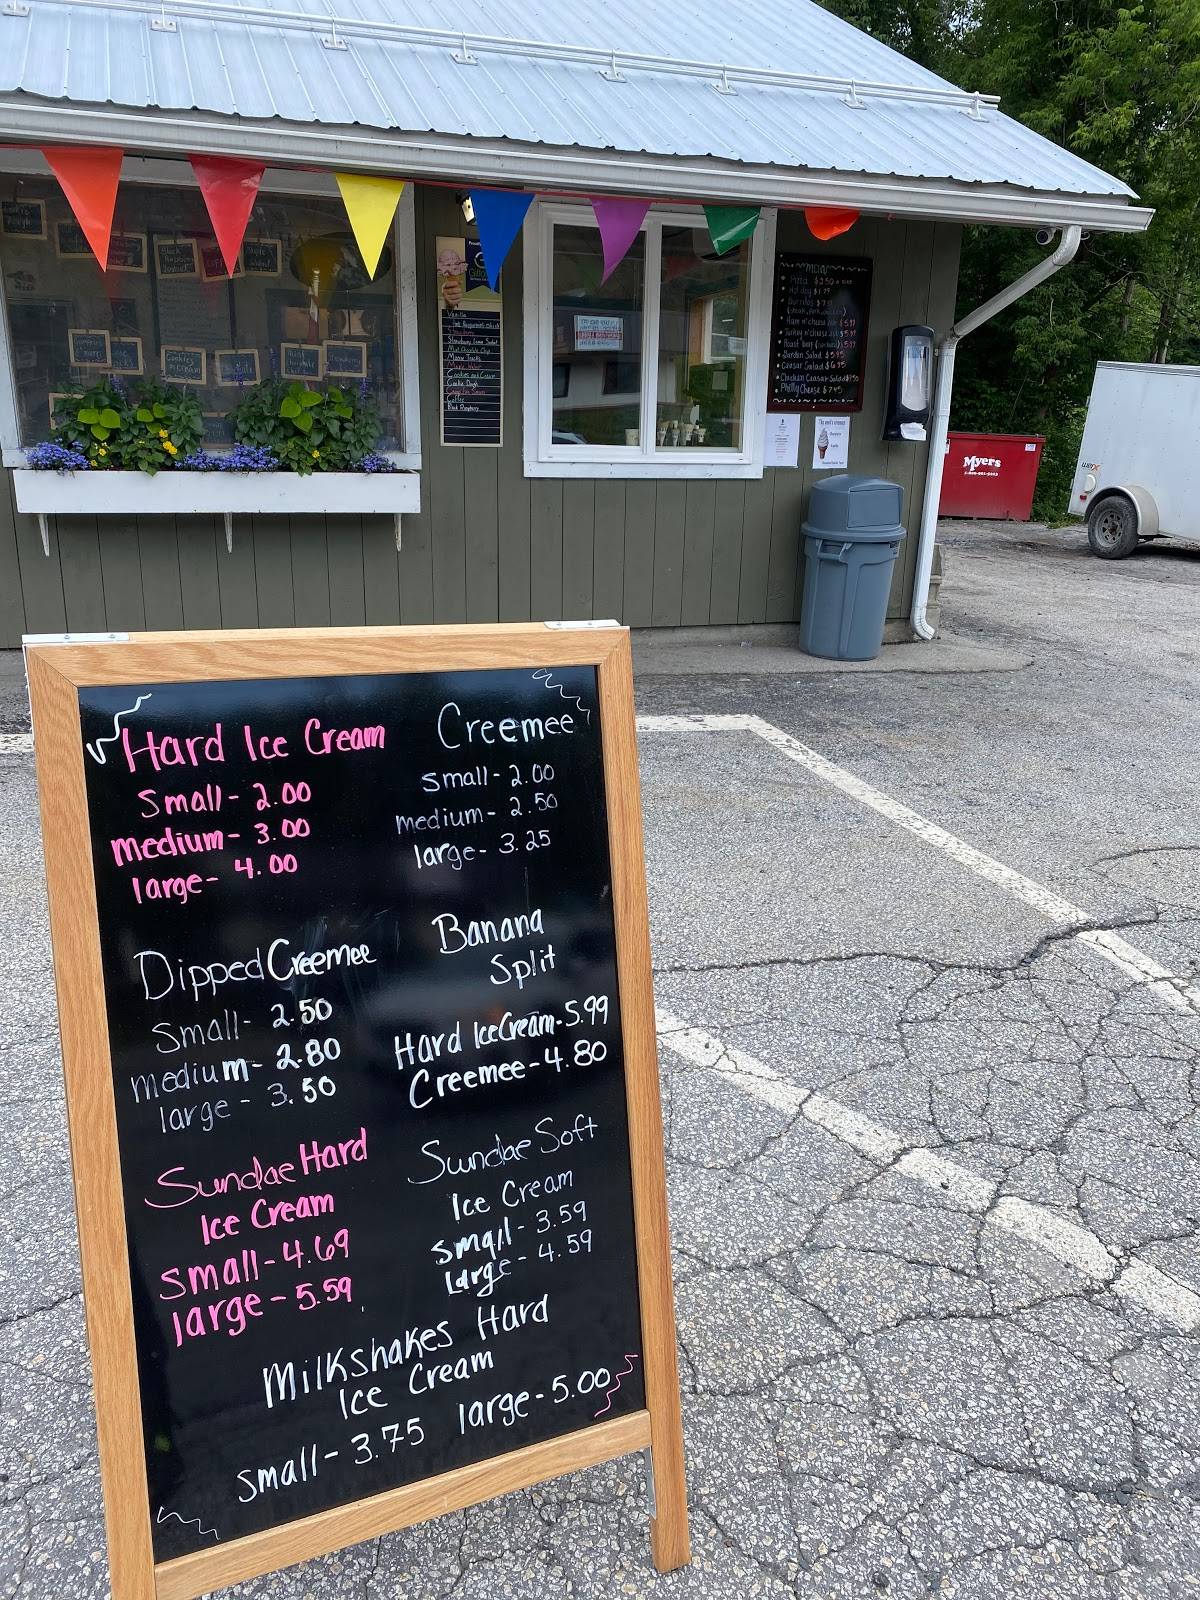 Hard Ice Cream
Small - 2.00
medium - 3.00
large - 4.00
Creemee
small - 2.00
medium - 2.50
large - 3.25
Dipped Creemee
Small - 2.50
medium - 2.80
large - 3.50
Banana
Split
Hard Ice Cream - 5.99
Creemee - 4.80
Sundae Hard
Ice Cream
small - 4.69
large - 5.59
Sundae Soft
Ice Cream
small - 3.59
large - 4.59
Milkshakes Hard
Ice Cream
small - 3.75 large - 5.00
MENU
Pizza $2.50
Hot dog $1.79
Burritos
Ham n' cheese $5.99
Turkey n' cheese $5.99
Roast beef
Garden Salad $5.95
Caesar Salad $6.95
Chicken Caesar Salad
Philly Cheese $7.45
Vanilla
Mint Chocolate Chip
Moose Tracks
Maple Walnut
Cookies and Cream
Cookie Dough
Coffee
Black Raspberry
Myers